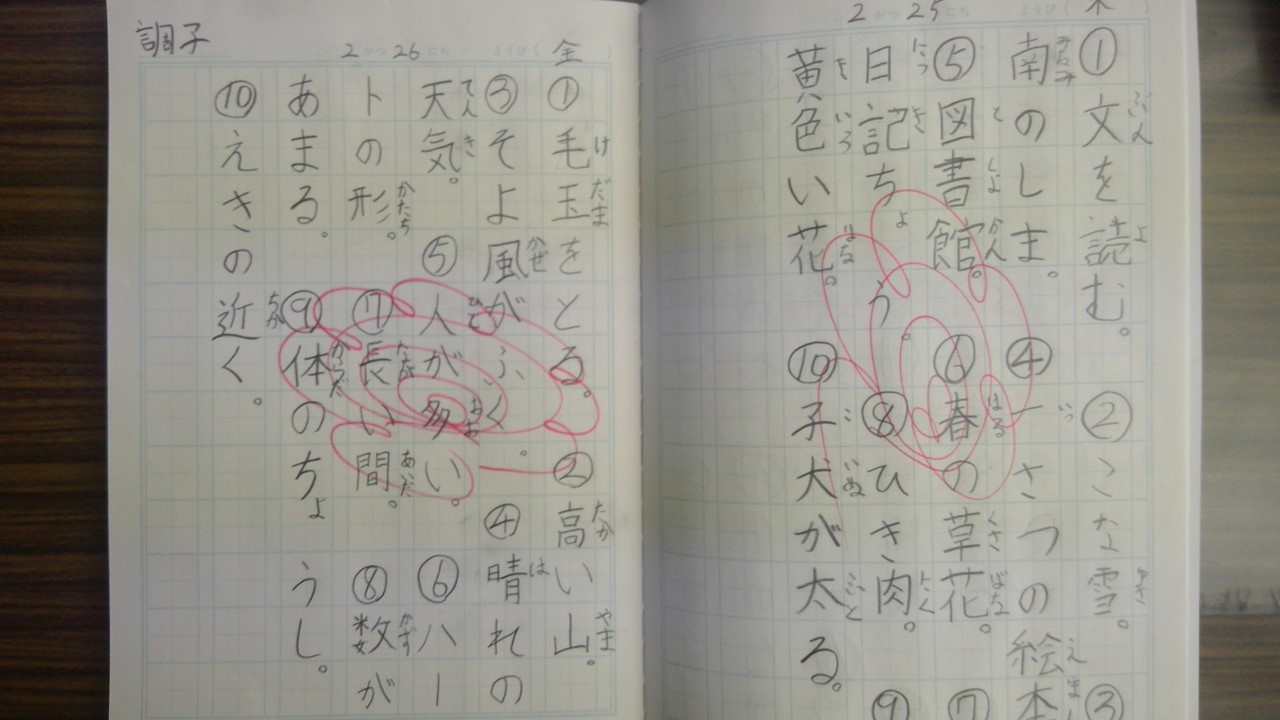 2がつ25にち ようび(木
①文を読む。②こな雪。③
ぶん よ ゆき
南のしま。④一さつの絵本
みなみ いっ え
⑤図書館。⑥春の草花。⑦
としょかん はる くさばな
日記ちょう。⑧ひき肉。⑨
にっき にく
黄色い花。⑩子犬が太る。
きいろ はな こいぬ ふと
2がつ26にち ようび(金)
①毛玉をとる。②高い山。
けだま たか やま
③そよ風がふく。④晴れの
かぜ は
天気。⑤人が多い。⑥ハー
てんき ひと おお
トの形。⑦長い間。⑧数が
かたち なが あいだ かず
あまる。⑨体のちょうし。
からだ
⑩えきの近く。
ちか
調子